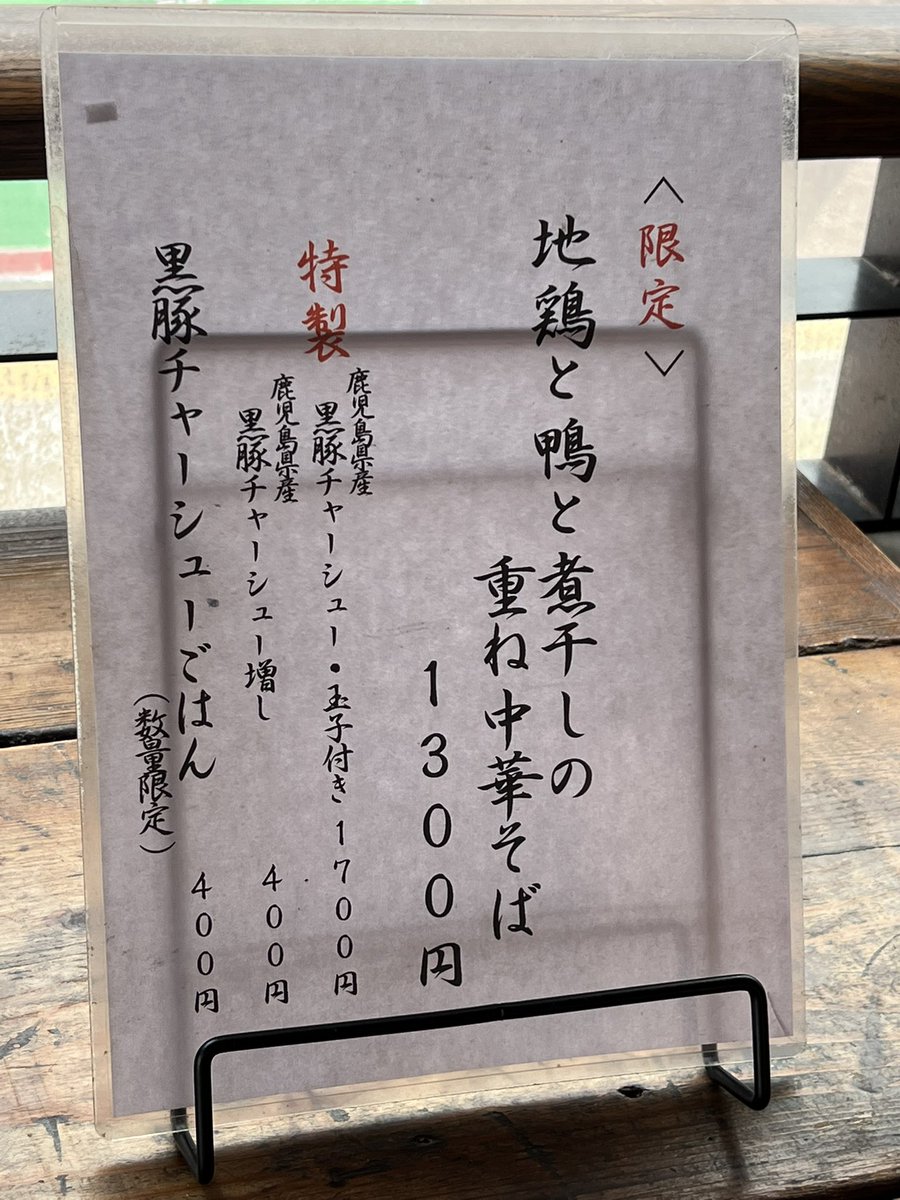 〈限定〉
地鶏と鴨と煮干しの
重ね中華そば
１３００円
特製
鹿児島県産
黒豚チャーシュー・玉子付き １７００円
鹿児島県産
黒豚チャーシュー増し ４００円
黒豚チャーシューごはん ４００円
（数量限定）